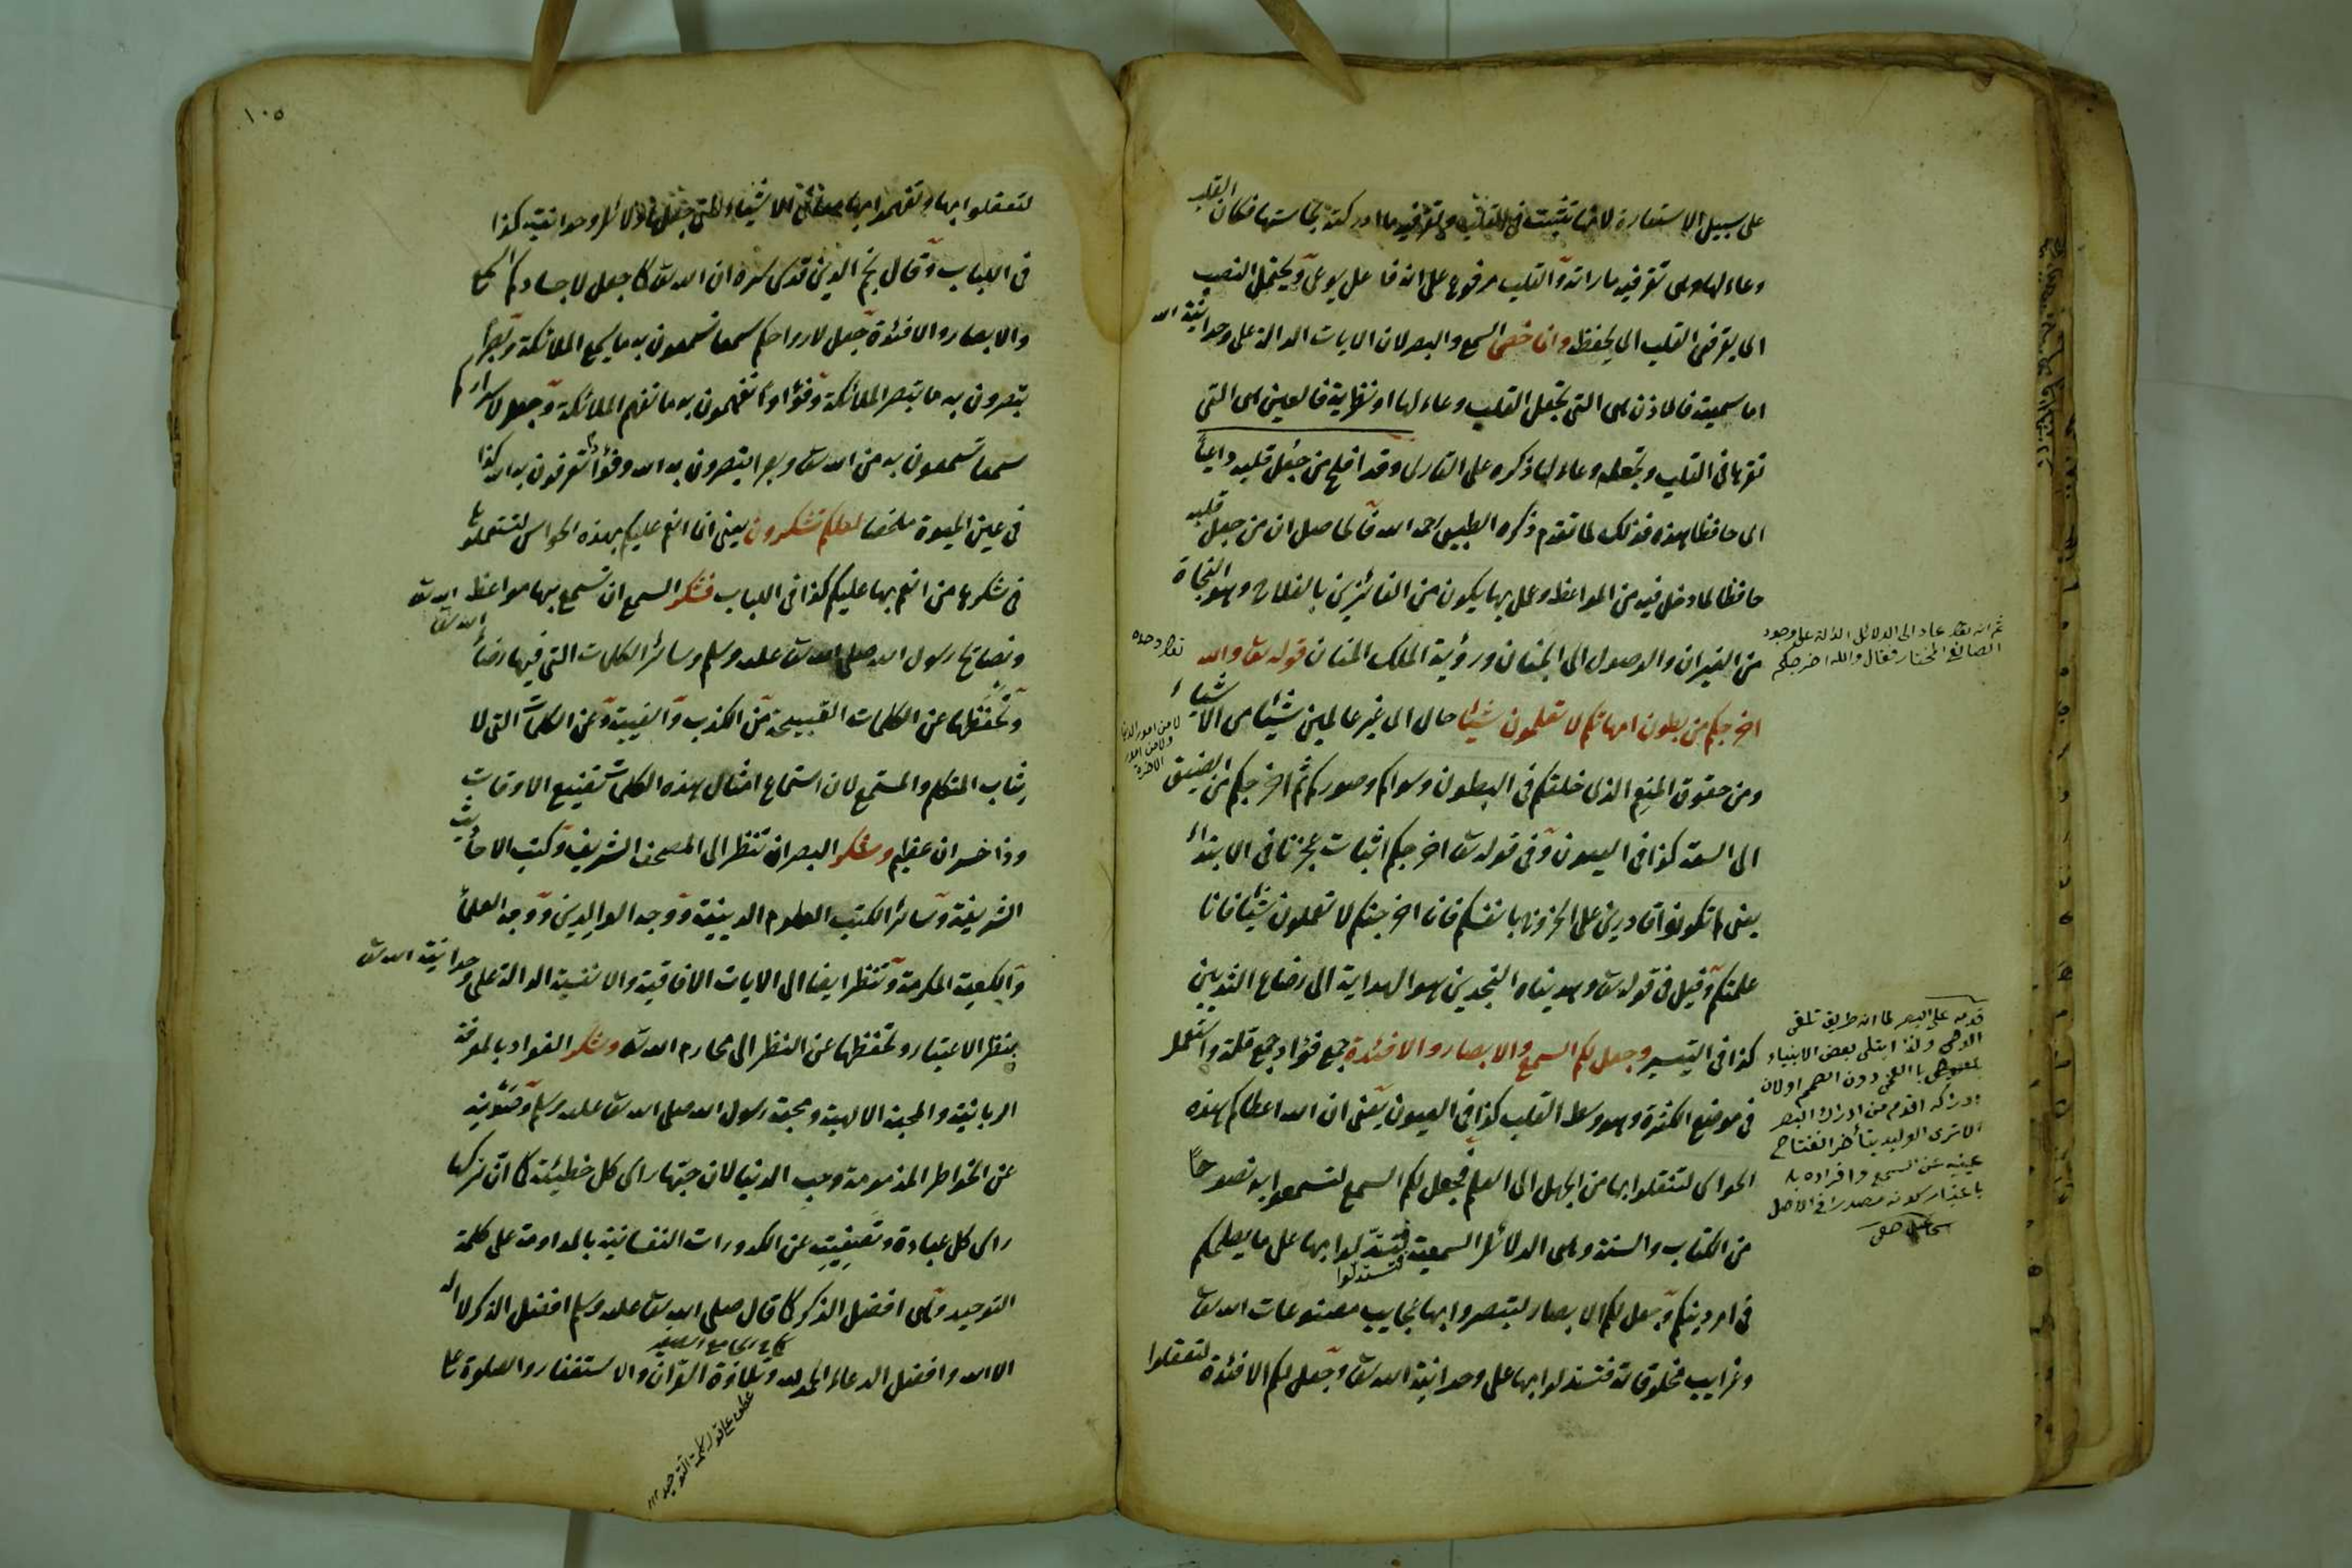 على سبيل الاستعارة لانها تثبت فى القلب وتقر فيه ما ادركته بحاستها فكان القلب
وعاء لها وهى تقر فيه ما راته والقلب مرفوع على انه فاعل يوعى ويحتمل النصب
اى يقر فى القلب اى يحفظ وانما خص السمع والبصر لان الايات الدالة على وحدانية الله
اما سمعية فالاذن هى التى تجعل القلب وعاء لها او نظرية فالعين هى التى
تقرها فى القلب وتجعله وعاء لها ذكره على القارى وقد افلح من جعل قلبه واعيا
اى حافظا هذه فذلك لما تقدم ذكره الطيبى رحمه الله فالحاصل ان من جعل قلبه
حافظا لما دخل فيه من المواعظ وعمل بها يكون من الفائزين بالفلاح وهو النجاة
من النيران والوصول الى الجنان ورؤية الملك المنان قوله تعالى والله
اخرجكم من بطون امهاتكم لا تعلمون شيئا حال اى غير عالمين شيئا من الاشياء
ومن حقوق المنعم الذى خلقكم فى البطون وسواكم وصوركم ثم اخرجكم من الضيق
الى السعة كذا فى العيون وفى قوله تعالى اخرجكم اثبات عجزنا فى الابتداء
يعنى لم تكونوا قادرين على الخروج بانفسكم فانا اخرجتكم لا تعلمون شيئا فانا
علمتكم وقيل فى قوله تعالى وهديناه النجدين هو الهداية الى رضاع الثديين
كذا فى التيسير وجعل لكم السمع والابصار والافئدة جمع فؤاد جمع قلة واستعمل
فى موضع الكثرة وهو وسط القلب كذا فى العيون يعنى ان الله اعطاكم هذه
الحواس لتنتقلوا بها من الجهل الى العلم فجعل لكم السمع لتسمعوا به نصوصا
من الكتاب والسنة وهى الدلائل السمعية لتستدلوا بها على ما يصلحكم
لتستدلوا
فى امر دينكم وجعل لكم الابصار لتبصروا بها عجايب مصنوعات الله تعالى
وغرايب مخلوقاته فتستدلوا بها على وحدانية الله تعالى وجعل لكم الافئدة لتعقلوا
ثم انه تعالى عاد الى الدلائل الدالة على وجود
الصانع المختار فقال والله اخرجكم
لا من امور الدنيا
ولا من امور
الاخرة
قدمه على البصر لما انه طريق تلقى
الوحى ولذا ابتلى بعض الانبياء
بالعمى دون الصمم او لان
ادراكه اقدم من ادراك البصر
الا ترى الوليد يتأخر انفتاح
عينيه عن السمع وافراده
باعتبار كونه مصدرا فى الاصل
اسماعيل حقى
١٠٥
لتعقلوا بها وتفهموا بها معانى الاشياء التى جعلها دلائل وحدانيته كذا
فى اللباب وقال نجم الدين قدس سره ان الله تعالى كما جعل لاجسادكم السمع
والابصار والافئدة جعل لارواحكم سمعا تسمعون به ما يسمع الملائكة وبصرا
تبصرون به ما يبصر الملائكة وفؤادا تفهمون به ما تفهم الملائكة وجعل لاسراركم
سمعا تسمعون به من الله تعالى وبصرا تبصرون به الله وفؤادا تعرفون به الله كذا
فى عين الحيوة ملخصا لعلكم تشكرون يعنى انما انعم عليكم بهذه الحواس لتستعملوها
فى شكر من انعم بها عليكم كذا فى اللباب فشكر السمع ان تسمع بها مواعظ الله تعالى
ونصايح رسول الله صلى الله تعالى عليه وسلم وسائر الكلمات التى فيها رضاء الله تعالى
وتحفظها عن الكلمات القبيحة من الكذب والغيبة وعن الكلمات التى لا
يثاب المتكلم والمستمع لان استماع امثال هذه الكلمات تضييع الاوقات
وذا خسران عظيم وشكر البصر ان تنظر الى المصحف الشريف وكتب الاحاديث
الشريفة وسائر الكتب العلوم الدينية ووجه الوالدين ووجه العلماء
والكعبة المكرمة وتنظر ايضا الى الايات الافاقية والانفسية الدالة على وحدانية الله تعالى
بنظر الاعتبار وتحفظها عن النظر الى محارم الله تعالى وشكر الفؤاد بالمعرفة
الربانية والمحبة الالهية ومحبة رسول الله صلى الله تعالى عليه وسلم وتصونه
عن الخواطر المذمومة وحب الدنيا لان حبها راس كل خطيئة كما ان تركها
راس كل عبادة وتصفيته عن الكدورات النفسانية بالمداومة على كلمة
التوحيد وهى افضل الذكر كما قال صلى الله تعالى عليه وسلم افضل الذكر لا اله
الا الله وافضل الدعاء الحمد لله وتلاوة القرآن والاستغفار والصلوة على
كما فى الجامع الصغير
عطف على قوله كلمة التوحيد